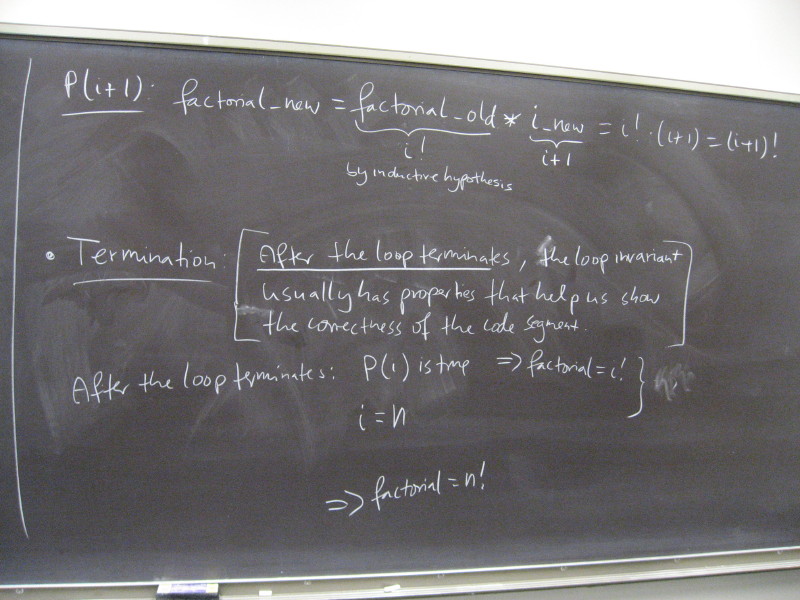 P(i+1): factorial_new = factorial_old * i_new = i! · (i+1) = (i+1)!
i! i+1
by inductive hypothesis
• Termination: [After the loop terminates, the loop invariant
usually has properties that help us show
the correctness of the code segment.]
After the loop terminates: P(i) is true ⇒ factorial = i! }
i = n
⇒ factorial = n!